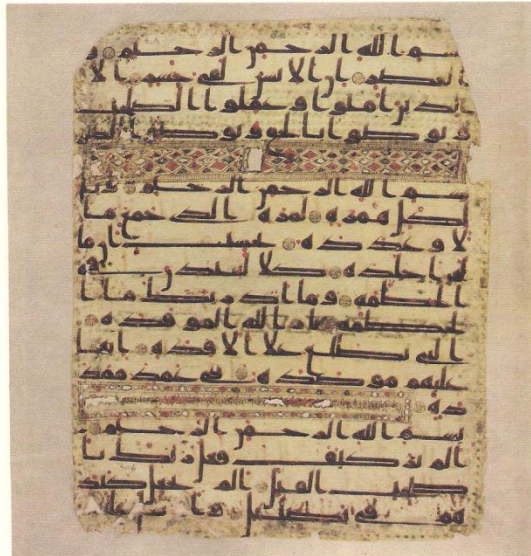 بسم الله الرحمن الرحيم و
العصر ان الانسن لفى خسر الا ا
لذين امنوا وعملوا الصلحت
و توصوا بالحق وتوصوا بالصبر
بسم الله الرحمن الرحيم ويل
لكل همزة لمزة الذى جمع ما
لا وعدده يحسب ان ما
له اخلده كلا لينبذن فى
الحطمة وما ادريك ما ا
لحطمة نار الله الموقدة
التى تطلع على الافدة انها
عليهم موصدة فى عمد ممد
دة
بسم الله الرحمن الرحيم
الم تر كيف فعل ربك با
صحب الفيل الم يجعل كيد
هم فى تضليل وارسل علي